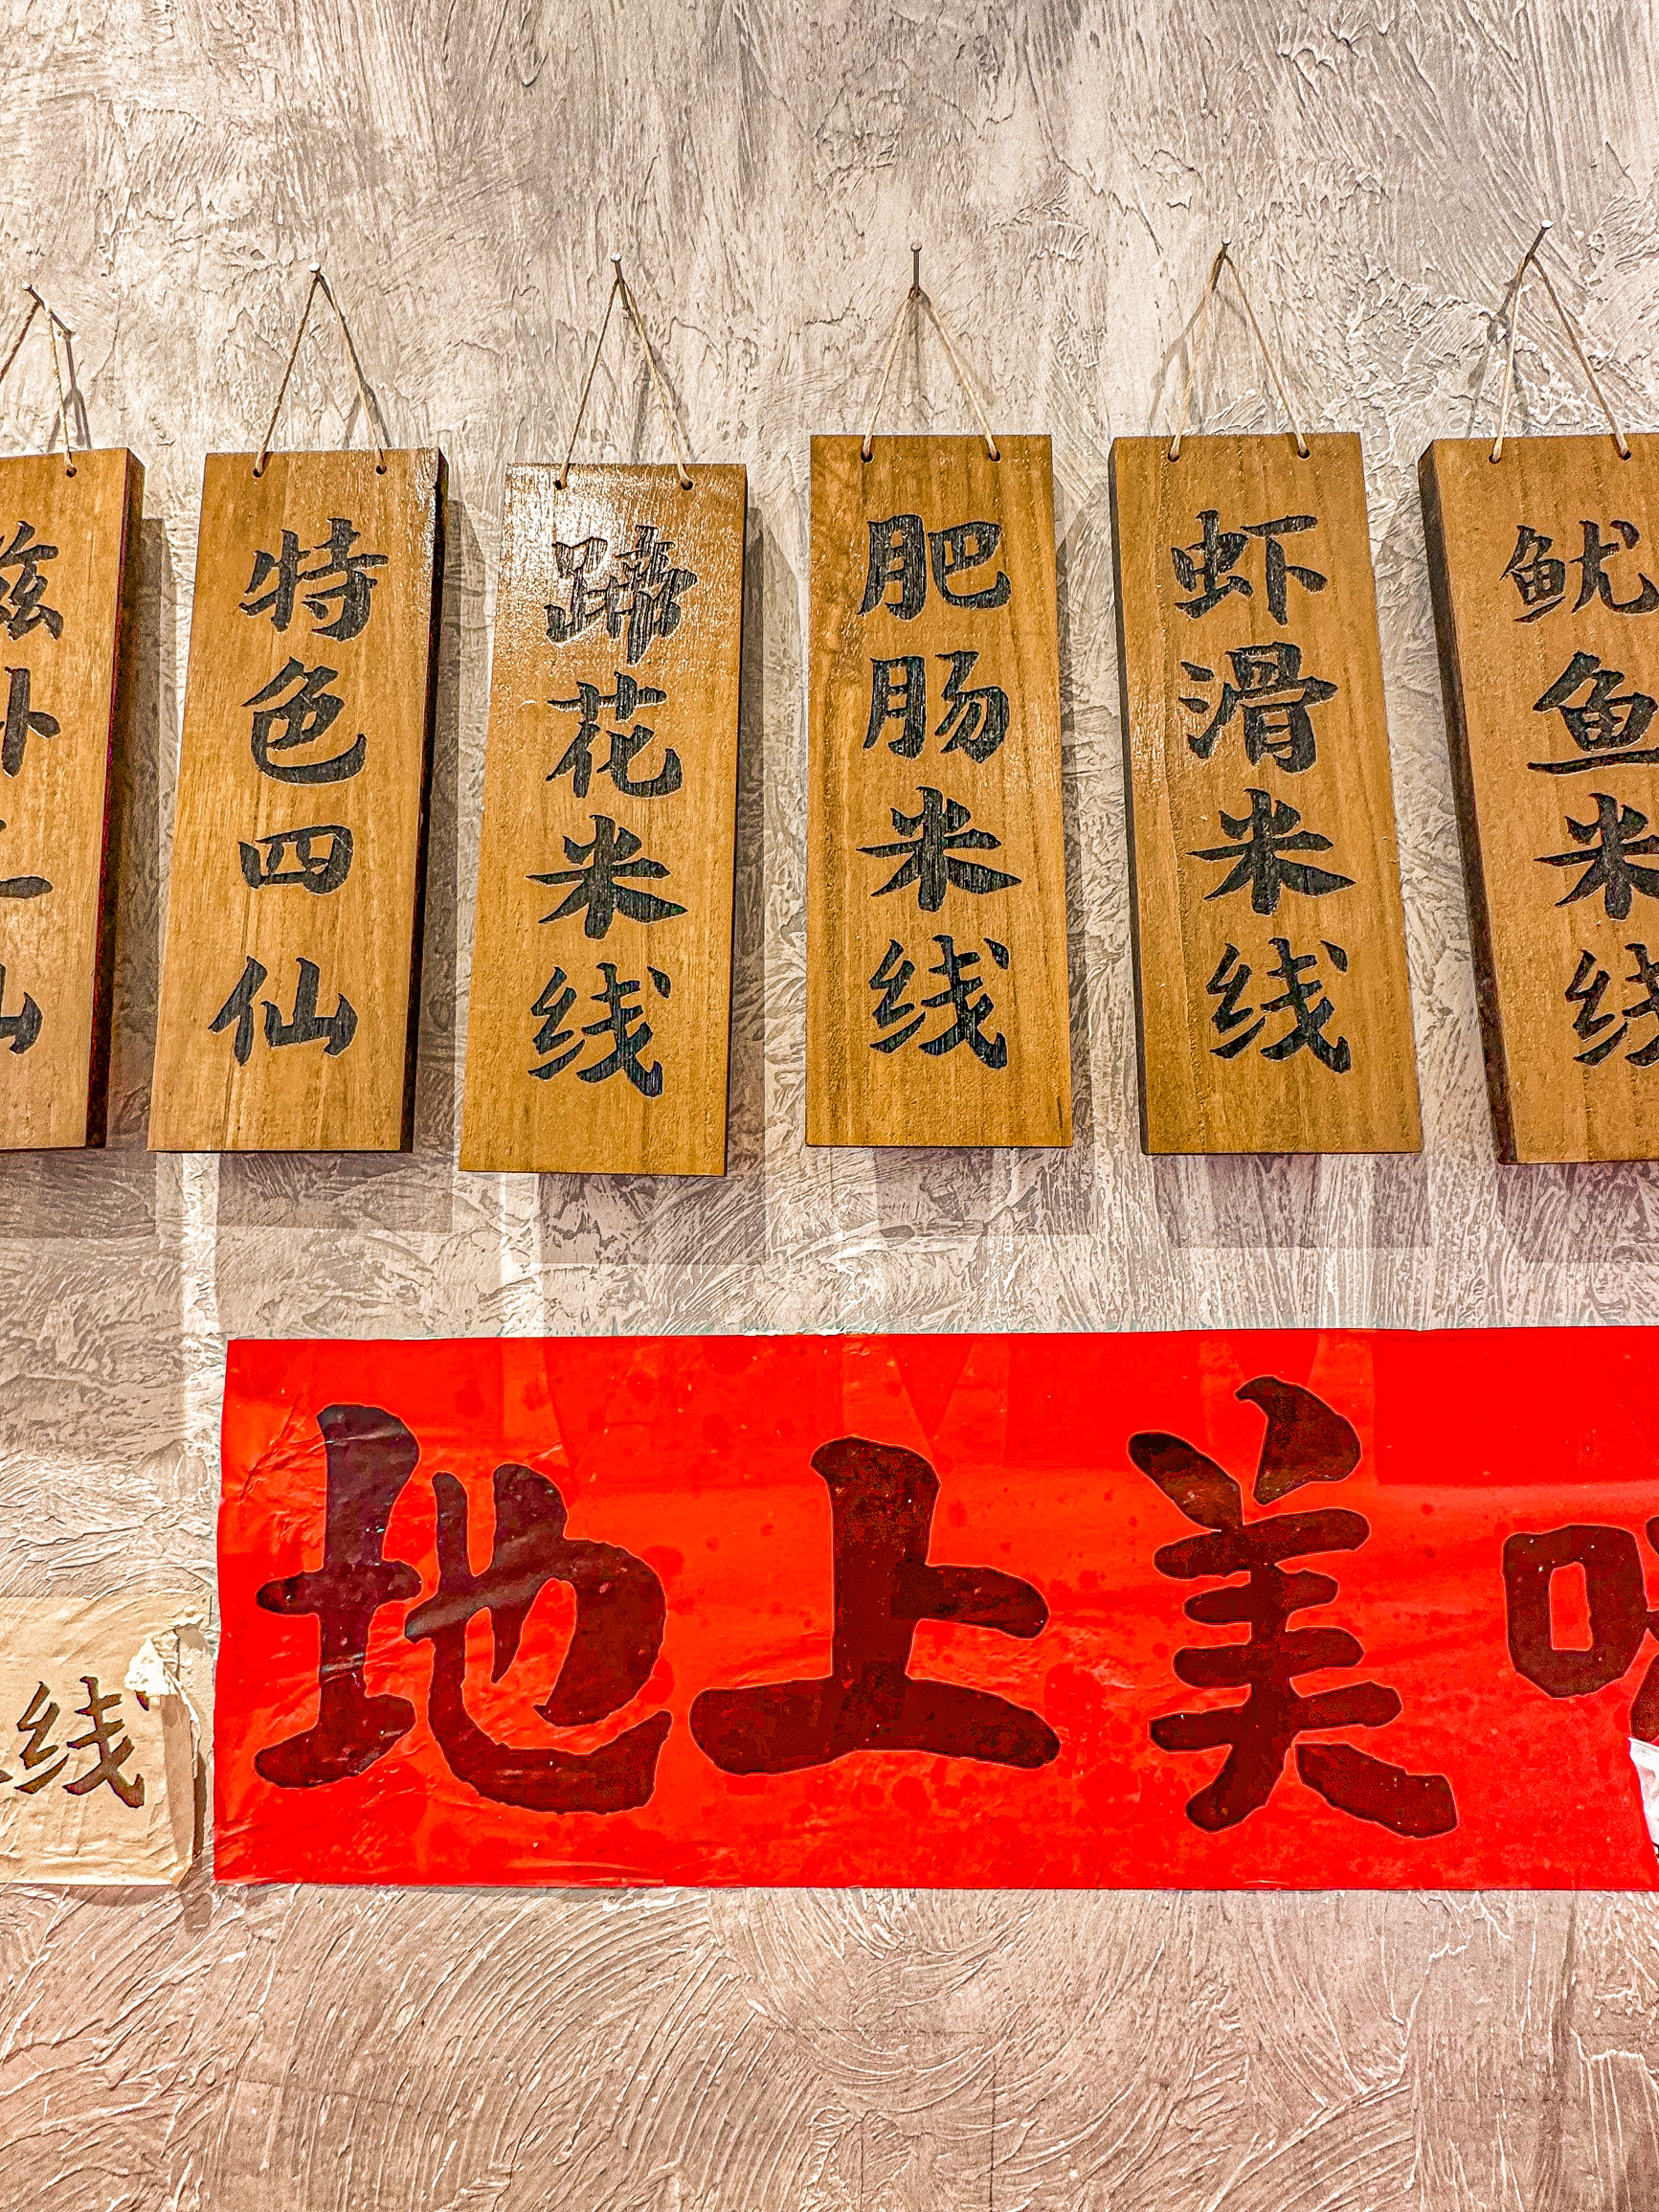 特色四仙
蹄花米线
肥肠米线
虾滑米线
鱿鱼米线
地上美
线